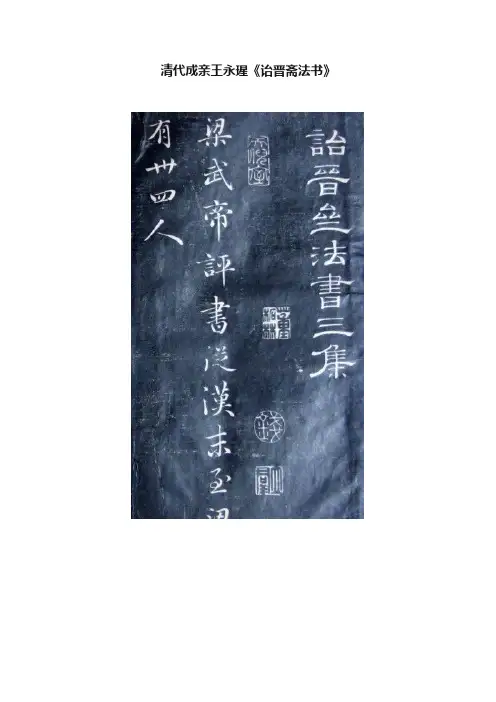 清代成亲王永瑆《诒晋斋法书》
詒晉亝法書三集
梁武帝評書從漢末至梁
有卅四人